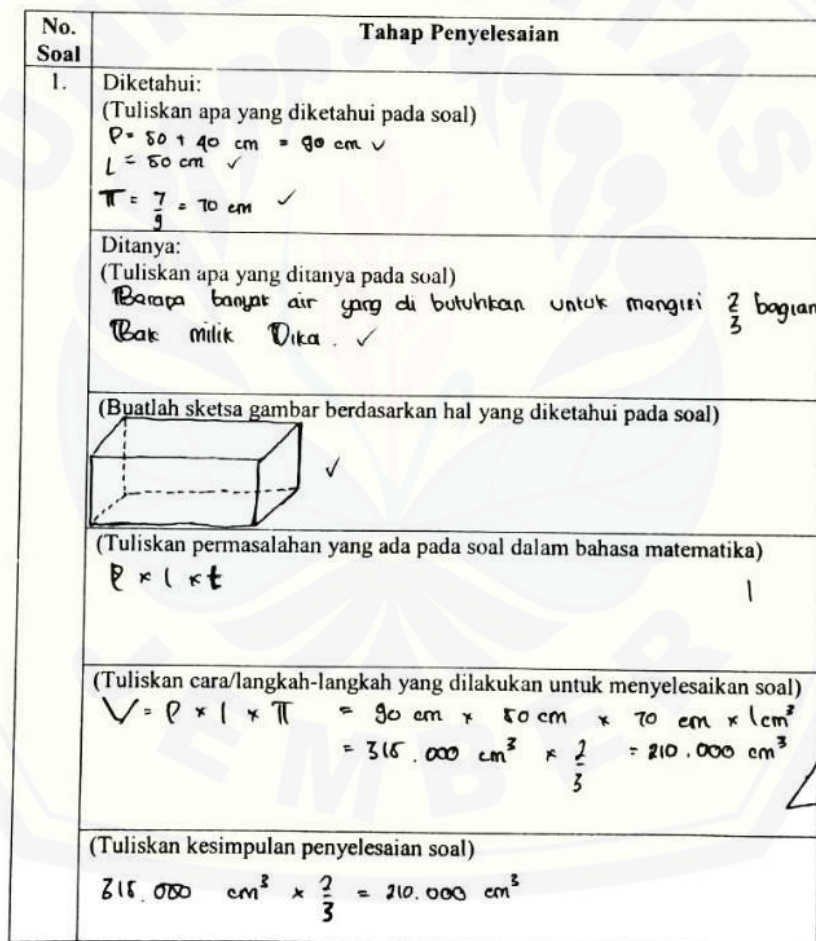 No. Soal
Tahap Penyelesaian
1.
Diketahui:
(Tuliskan apa yang diketahui pada soal)
P = 50 + 40 cm = 90 cm ✓
L = 50 cm ✓
π = 7/9 = 70 cm ✓
Ditanya:
(Tuliskan apa yang ditanya pada soal)
Berapa banyak air yang di butuhkan untuk mengisi 2/3 bagian
Bak milik Dika. ✓
(Buatlah sketsa gambar berdasarkan hal yang diketahui pada soal)
✓
(Tuliskan permasalahan yang ada pada soal dalam bahasa matematika)
P × l × t
1
(Tuliskan cara/langkah-langkah yang dilakukan untuk menyelesaikan soal)
V = P × l × π = 90 cm × 50 cm × 70 cm × 1cm³
= 315.000 cm³ × 2/3 = 210.000 cm³
(Tuliskan kesimpulan penyelesaian soal)
315.000 cm³ × 2/3 = 210.000 cm³